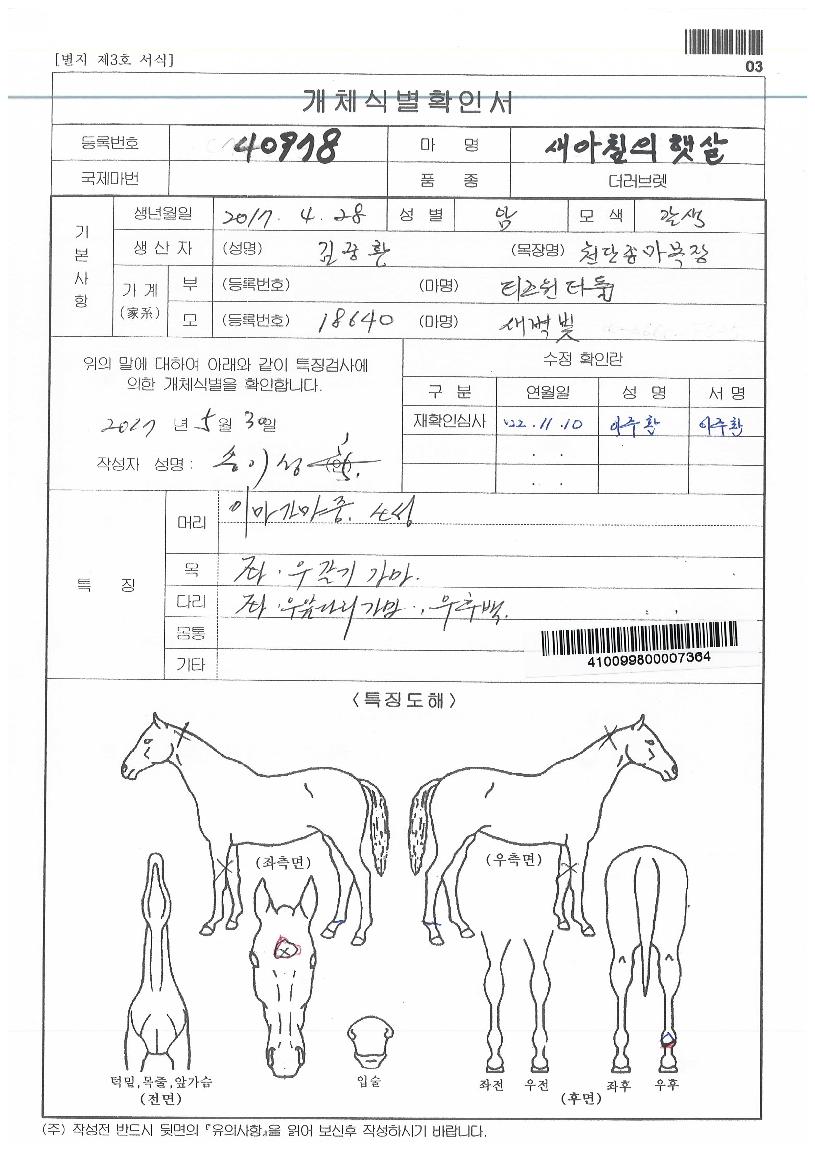 [별지 제3호 서식]
03
개체식별확인서
등록번호 40978 마 명 새아침의 햇살
국제마번 품 종 더러브렛
기본사항
생년월일 2017. 4. 28 성 별 암 모 색 갈색
생 산 자 (성명) 김광환 (목장명) 천단종마목장
가 계 (家系) 부 (등록번호) (마명) 티즈원더풀
모 (등록번호) 18640 (마명) 새벽빛
위의 말에 대하여 아래와 같이 특징검사에
의한 개체식별을 확인합니다.
2017 년 5 월 30 일
작성자 성명 :
수정 확인란
구 분 연월일 성 명 서 명
재확인심사 '22.11.10 이주환 이주환
. .
. .
특 징
머리 이마가마중. 소성
목 좌.우갈기 가마.
다리 좌.우앞다리가마., 우후백.
몸통
기타
410099800007364
<특징도해>
(좌측면) (우측면)
턱밑,목줄,앞가슴
(전면)
입술
좌전 우전 좌후 우후
(후면)
(주) 작성전 반드시 뒷면의 『유의사항』을 읽어 보신후 작성하시기 바랍니다.